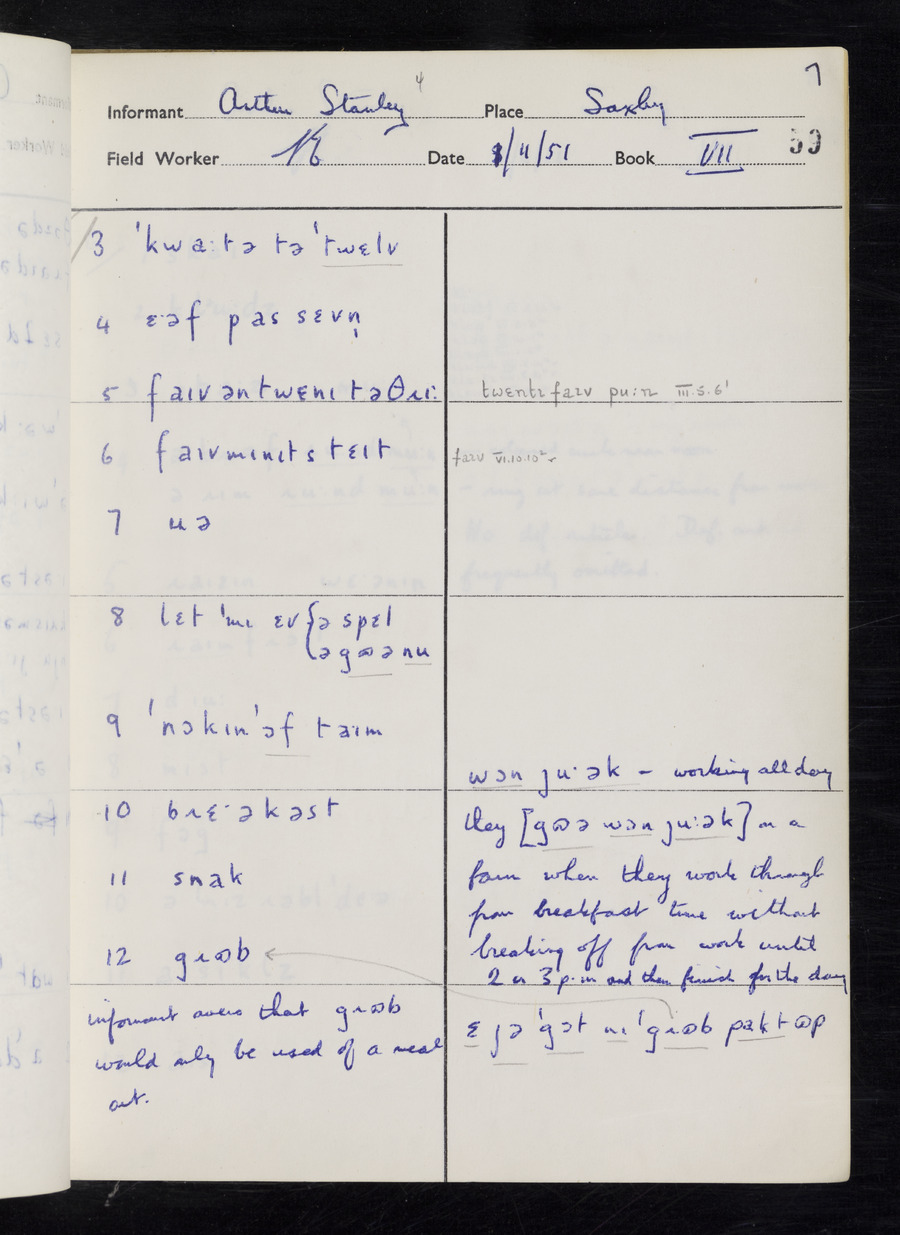 7
4
Informant Arthur Stanley Place Saxby
Field Worker Date 8/11/51 Book VII 59
3 ˈkwaːtə təˈtwɛlv
4 ɛəf pas sɛvn̩
5 faɪv ən twɛnɪ tə θɹiː twentɪ faɪv puːn III.5.6'
6 faɪv mɪnɪts tɛɪt faɪv VI.10.10
7 ɯə
8 lɛt ˈmɪ ɛv {ə spɛl
ə gɷə nɯ
9 ˈnɔkɪnˈɔf taɪm
wɔn juːək – working all day
10 bɹɛˑəkəst they [gɷə wɔn juːək] on a
11 snak farm when they work through
from breakfast time without
12 gɹɷb breaking off from work until
2 or 3 p.m and then finish for the day
informant avers that gɹɷb
would only be used of a meal ɛ jə ˈgɔt nɪ ˈgɹɷb pakt ɷp
out.